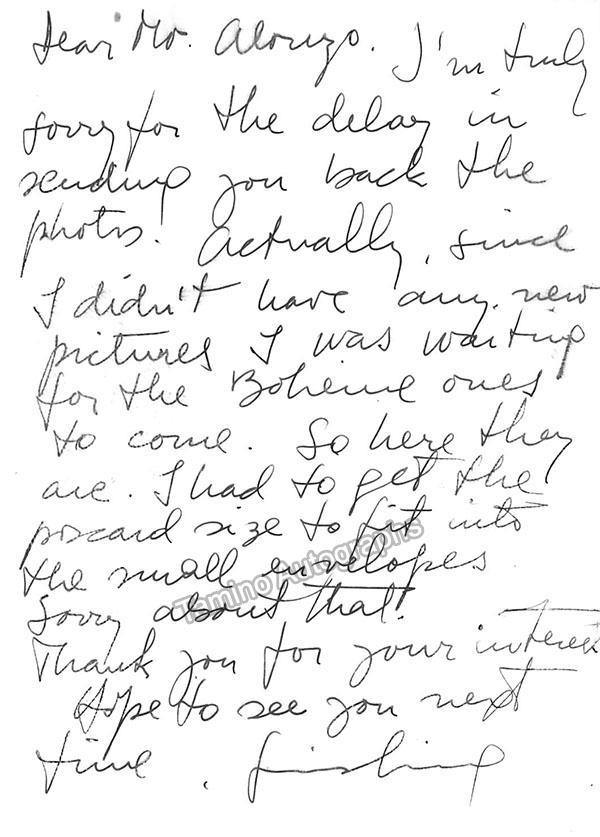 Dear Mr. Alonzo. I'm truly
sorry for the delay in
sending you back the
photos. Actually, since
I didn't have any new
pictures I was waiting
for the Boheme ones
to come. So here they
are. I had to get the
poscard size to fit into
the small envelopes.
Tamino Autographs
Sorry about that!
Thank you for your interest
Hope to see you next
time.